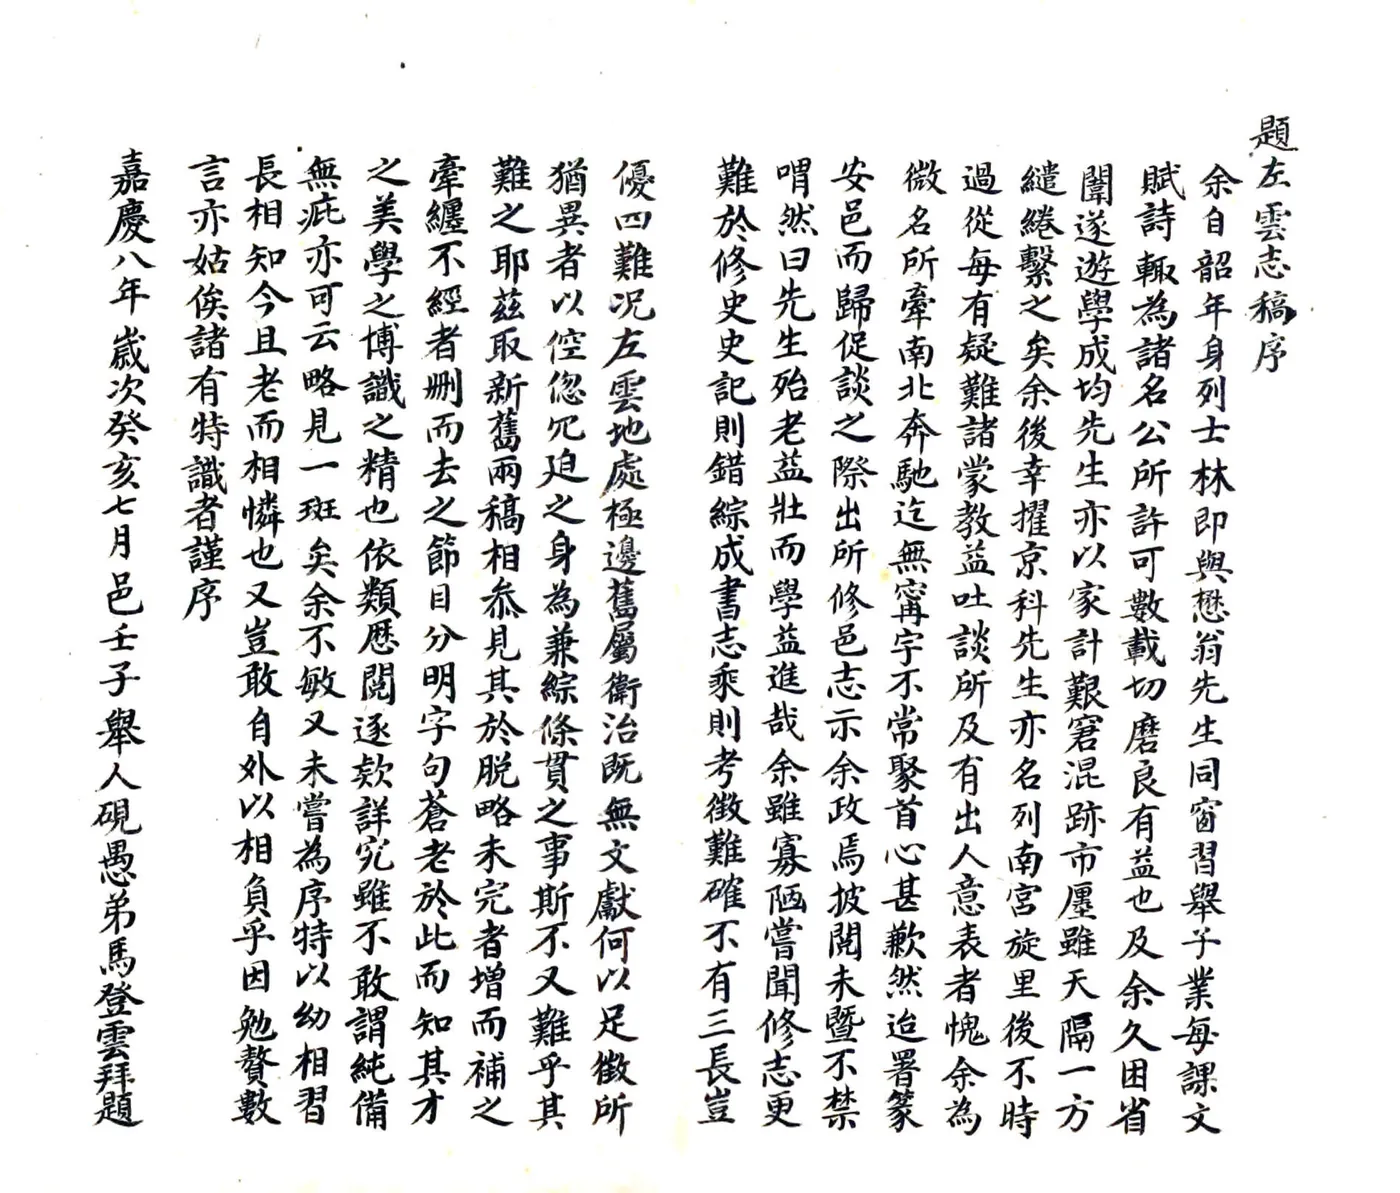 題左雲志稿序
余自韶年身列士林即與懋翁先生同窗習舉子業每課文
賦詩輙為諸名公所許可數載切磨良有益也及余久困省
闈遂遊學成均先生亦以家計艱窘混跡市廛雖天隔一方
繾綣繫之矣余後幸擢京科先生亦名列南宮旋里後不時
過從每有疑難諸蒙教益吐談所及有出人意表者愧余為
微名所牽南北奔馳迄無寗字不常聚首心甚歉然迨署篆
安邑而歸促談之際出所修邑志示余政焉披閱未暨不禁
喟然曰先生殆老益壯而學益進哉余雖寡陋嘗聞修志更
難於修史史記則錯綜成書志乘則考徵難確不有三長豈
優四難况左雲地處極邊舊屬衛治既無文獻何以足徵所
猶異者以倥偬冗廹之身為兼綜條貫之事斯不又難乎其
難之耶茲取新舊兩稿相叅見其於脱略未完者增而補之
牽纏不經者刪而去之節目分明字句蒼老於此而知其才
之美學之博識之精也依類歷閱逐欵詳究雖不敢謂純備
無疵亦可云略見一斑矣余不敏又未嘗為序特以幼相習
長相知今且老而相憐也又豈敢自外以相負乎因勉贅數
言亦姑俟諸有特識者謹序
嘉慶八年歲次癸亥七月邑壬子舉人硯愚弟馬登雲拜題